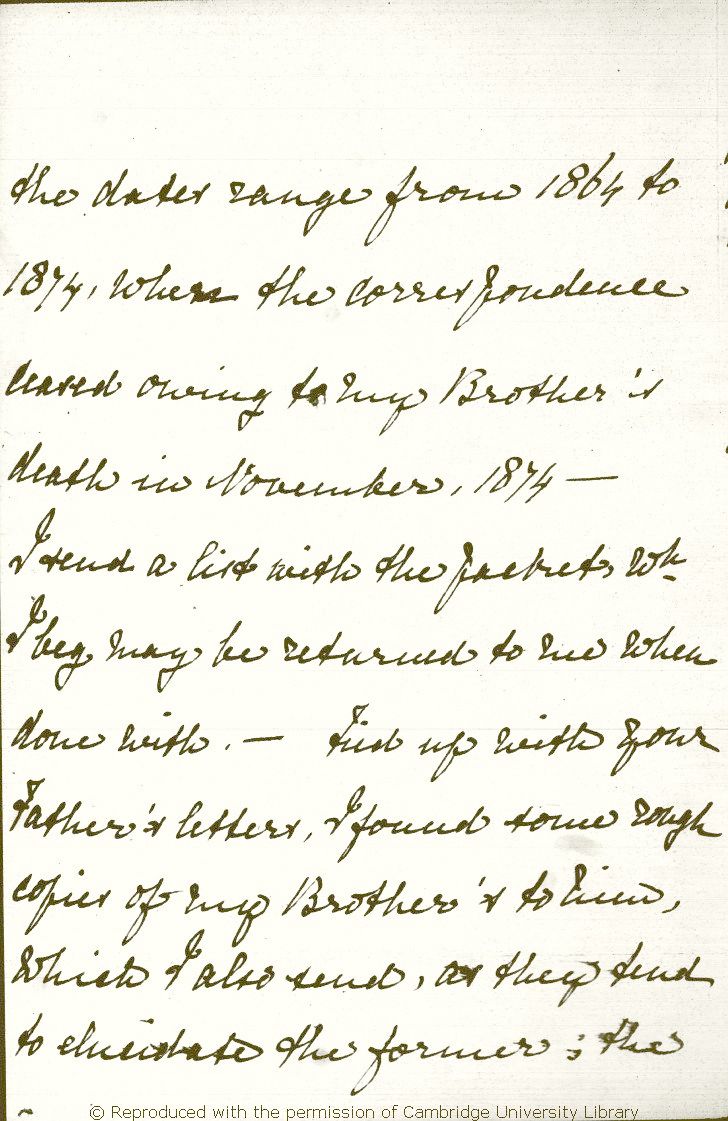 the dates range from 1864 to
1874, when the correspondence
ceased owing to my Brother's
death in November, 1874 —
I send a list with the packet, wh
I beg may be returned to me when
done with. — Tied up with your
Father's letters, I found some rough
copies of my Brother's to him,
which I also send, as they tend
to elucidate the former; the
© Reproduced with the permission of Cambridge University Library